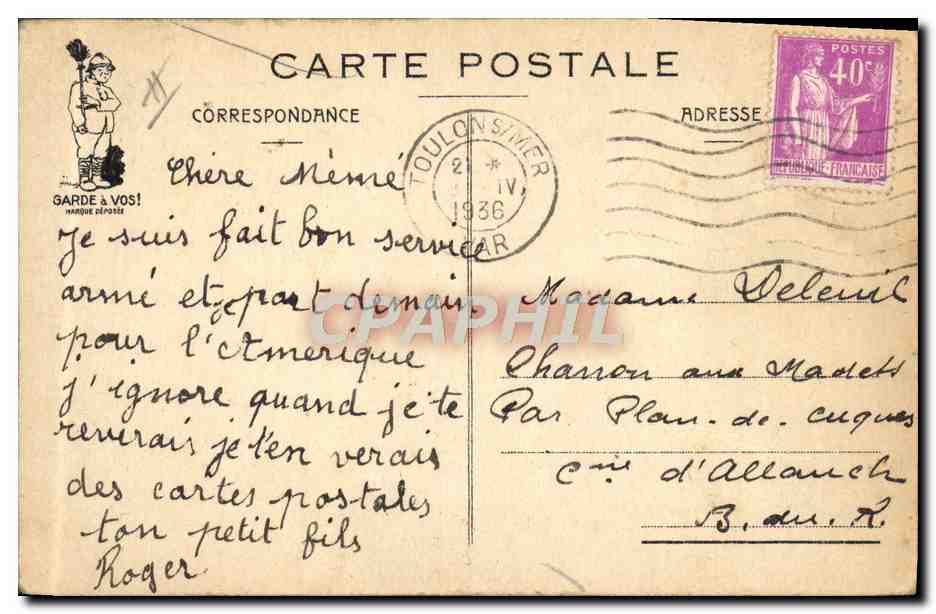 CARTE POSTALE
CORRESPONDANCE
ADRESSE
GARDE à VOS!
MARQUE DÉPOSÉE
POSTES
40c
REPUBLIQUE-FRANÇAISE
TOULON S/MER
2 *
IV
1936
VAR
Chère Mémé
Je suis fait bon service
armé et part demain
pour l'Amerique
j'ignore quand je te
reverais je t'en verais
des cartes postales
ton petit fils
Roger
Madame Deleuil
Charron aux Madets
Par Plan-de-cuques
Cne d'Allauch
B. du. R.
CPAPHIL